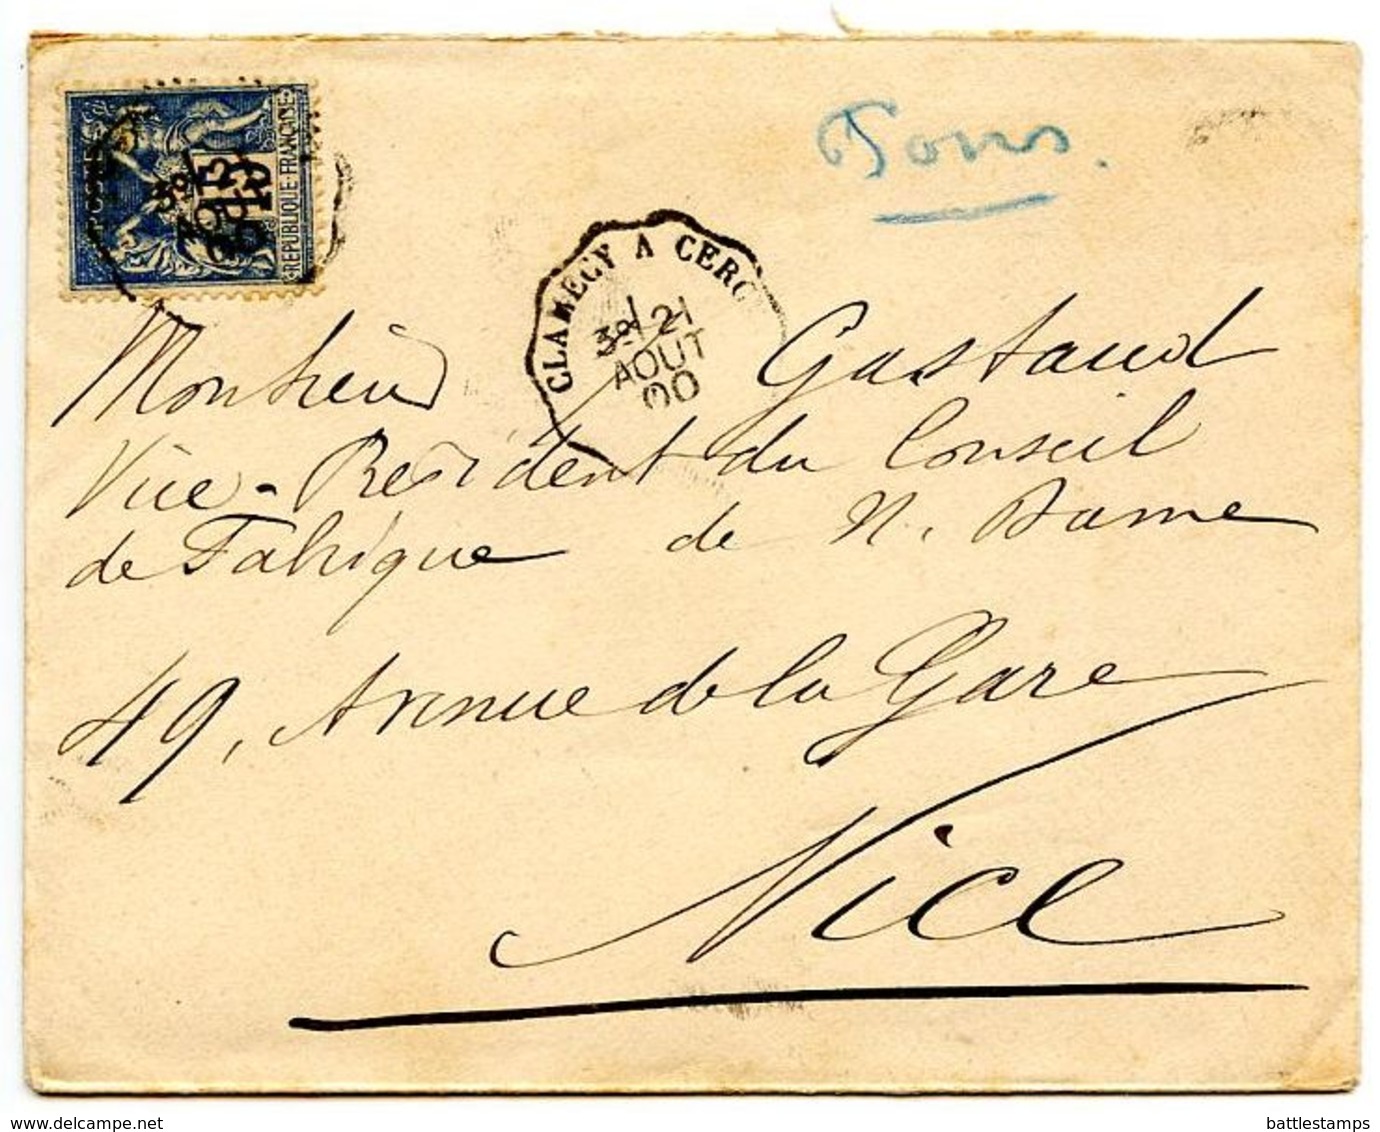 Tons.
REPUBLIQUE FRANÇAISE
15
CLAMECY A CERC
3º 21
AOUT
00
Monsieur Gastaud
Vice-President du Conseil
de Fabrique de N. Dame
49, Avenue de la Gare
Nice
www.delcampe.net
battlestamps